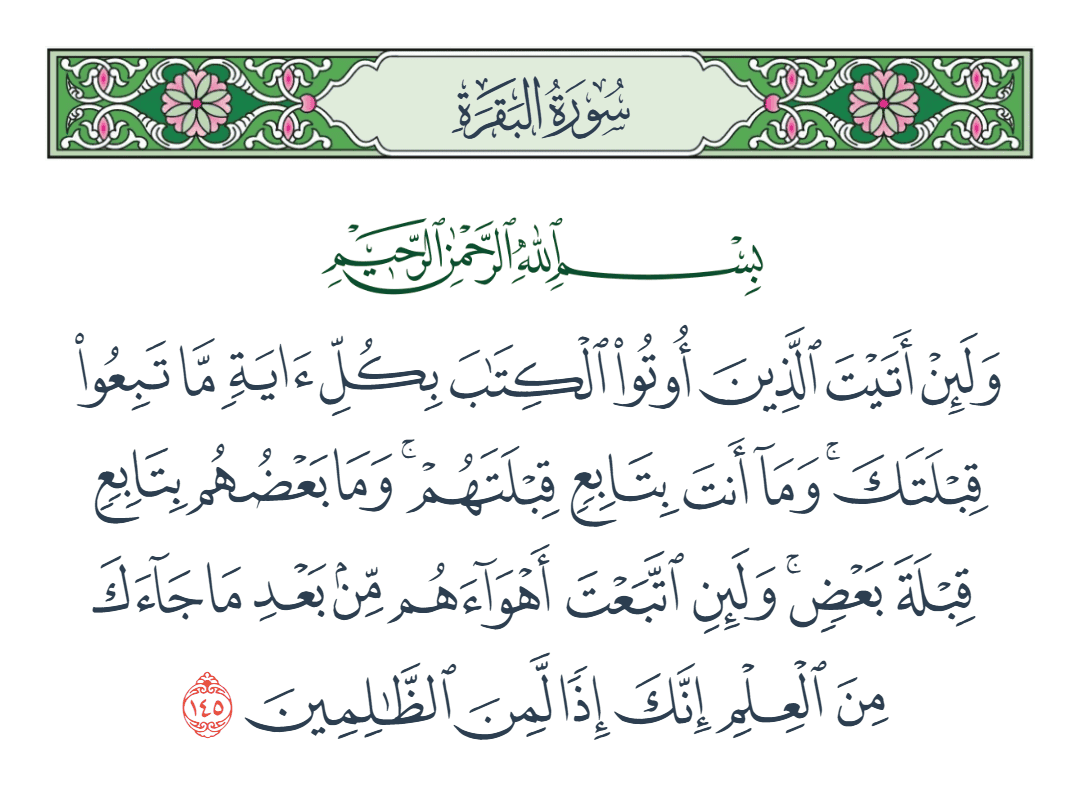 سُورَةُ البَقَرَةِ
بِسْمِ ٱللَّهِ ٱلرَّحْمَٰنِ ٱلرَّحِيمِ
وَلَئِنْ أَتَيْتَ ٱلَّذِينَ أُوتُوا۟ ٱلْكِتَٰبَ بِكُلِّ ءَايَةٍ مَّا تَبِعُوا۟
قِبْلَتَكَ ۚ وَمَآ أَنتَ بِتَابِعٍ قِبْلَتَهُمْ ۚ وَمَا بَعْضُهُم بِتَابِعٍ
قِبْلَةَ بَعْضٍ ۚ وَلَئِنِ ٱتَّبَعْتَ أَهْوَآءَهُم مِّنۢ بَعْدِ مَا جَآءَكَ
مِنَ ٱلْعِلْمِ إِنَّكَ إِذًا لَّمِنَ ٱلظَّٰلِمِينَ ١٤٥